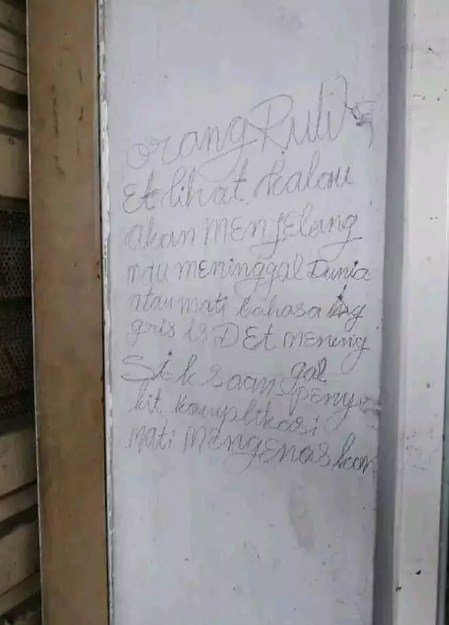 orang Ruli
Et lihat kalau
akan MENJELang
mau MENinggal Dunia
atau mati bahasa ing
gris is DEt MEning
gal
Siksaan penya
kit komplikasi
mati MENgEnaskan